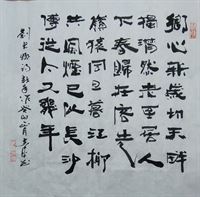 鄉心新歲切天畔
獨潸然老至居人
下春歸在客先
嶺猿同旦暮江柳
共風煙已似長沙
傅從今又幾年
劉長卿詩新年作